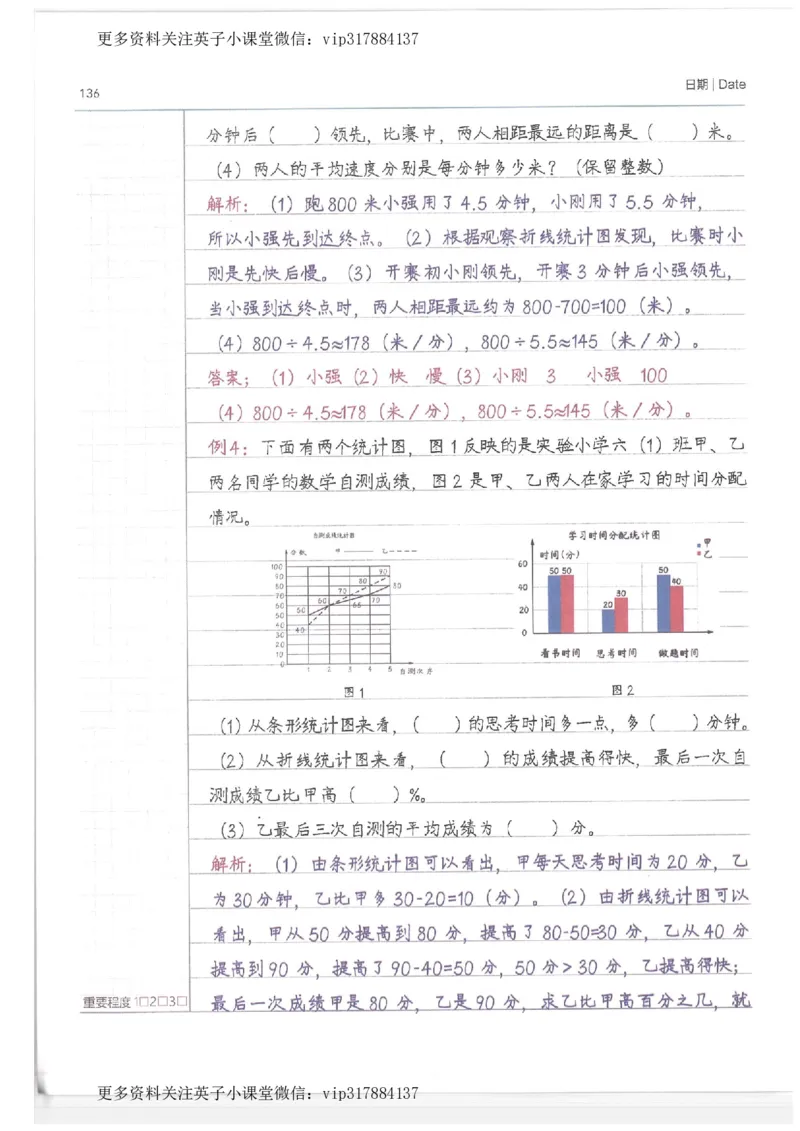 更多资料关注英子小课堂微信：vip317884137
136
日期 | Date
分钟后（　　）领先，比赛中，两人相距最远的距离是（　　）米。
（4）两人的平均速度分别是每分钟多少米？（保留整数）
解析：（1）跑800米小强用了4.5分钟，小刚用了5.5分钟，
所以小强先到达终点。（2）根据观察折线统计图发现，比赛时小
刚是先快后慢。（3）开赛初小刚领先，开赛3分钟后小强领先，
当小强到达终点时，两人相距最远约为800-700=100（米）。
（4）800÷4.5≈178（米/分），800÷5.5≈145（米/分）。
答案：（1）小强（2）快　慢（3）小刚　3　小强　100
（4）800÷4.5≈178（米/分），800÷5.5≈145（米/分）。
例4：下面有两个统计图，图1反映的是实验小学六（1）班甲、乙
两名同学的数学自测成绩，图2是甲、乙两人在家学习的时间分配
情况。
自测成绩统计图
分数　甲——　乙----
100
90
80
70
60
50
40
30
20
10
0
50　60　66　70　80
40　70　80　90
1　2　3　4　5　自测次序
图1
学习时间分配统计图
甲
乙
时间(分)
60
40
20
0
50　50　20　30　50　40
看书时间　思考时间　做题时间
图2
（1）从条形统计图来看，（　　）的思考时间多一点，多（　　）分钟。
（2）从折线统计图来看，（　　）的成绩提高得快，最后一次自
测成绩乙比甲高（　　）%。
（3）乙最后三次自测的平均成绩为（　　）分。
解析：（1）由条形统计图可以看出，甲每天思考时间为20分，乙
为30分钟，乙比甲多30-20=10（分）。（2）由折线统计图可以
看出，甲从50分提高到80分，提高了80-50=30分，乙从40分
提高到90分，提高了90-40=50分，50分>30分，乙提高得快；
最后一次成绩甲是80分，乙是90分，求乙比甲高百分之几，就
重要程度 1□2□3□
更多资料关注英子小课堂微信：vip317884137